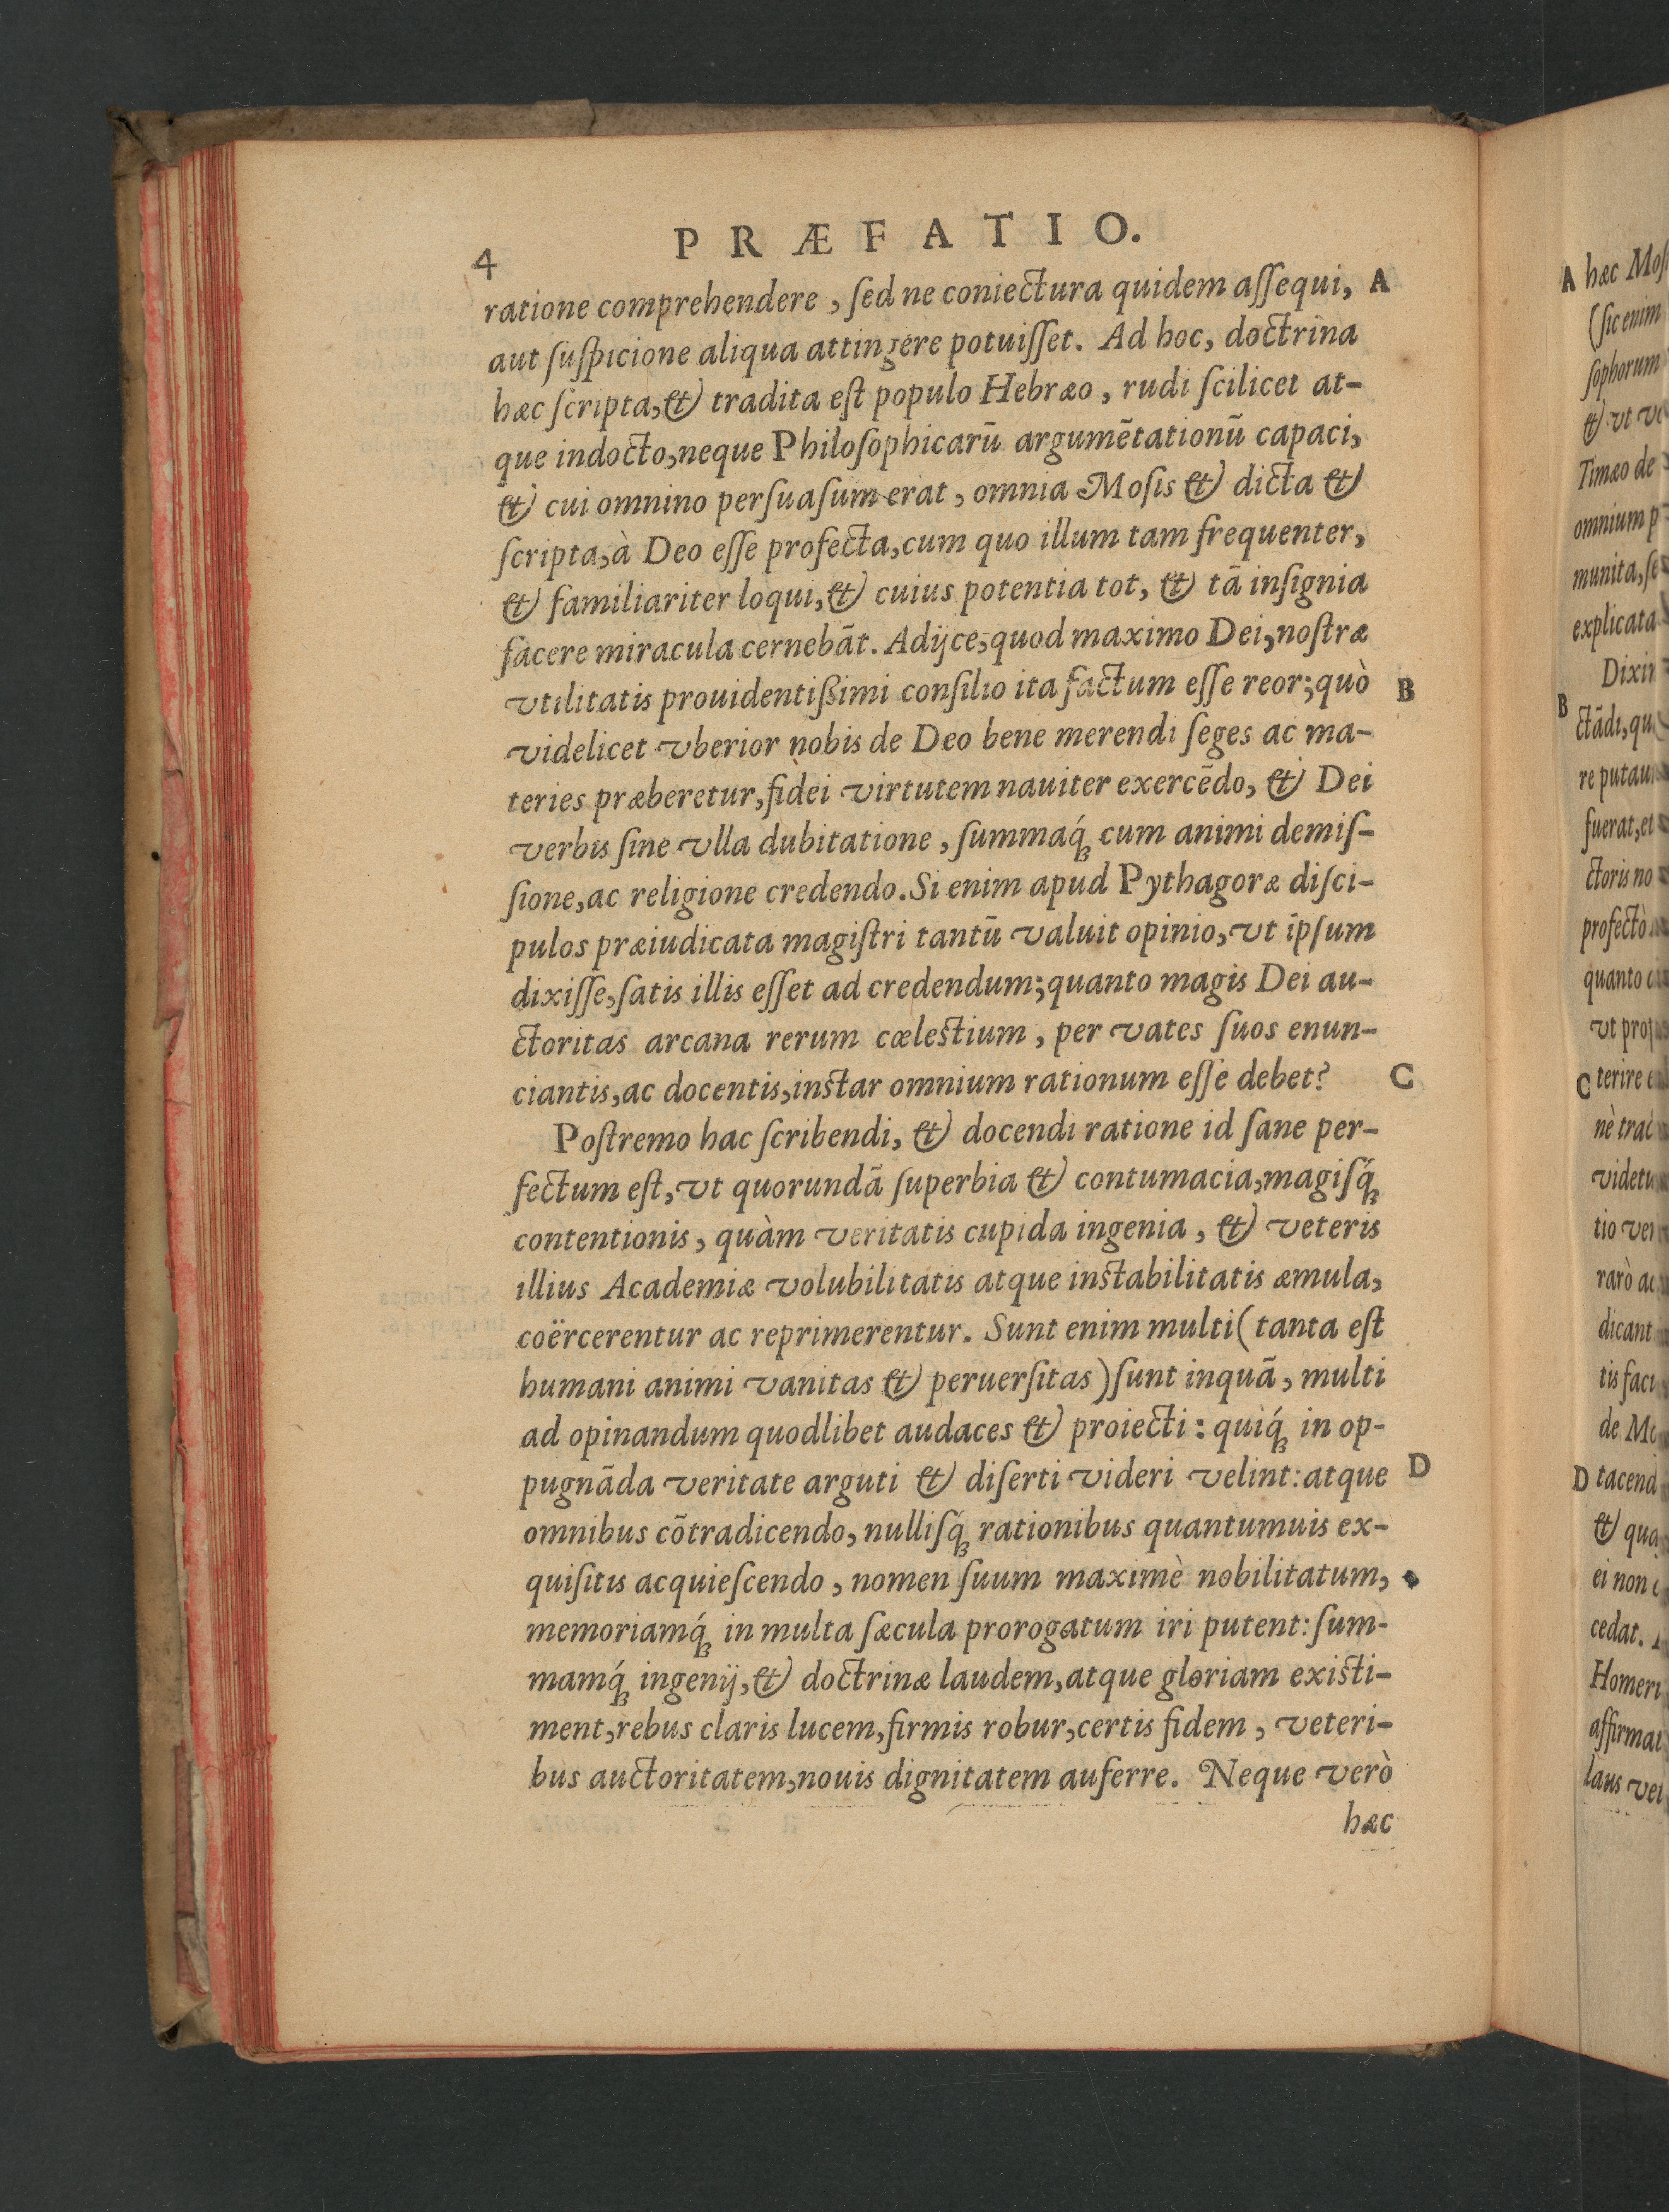 PRÆFATIO.
4
ratione comprehendere, ſed ne coniectura quidem aſſequi, A
aut ſuſpicione aliqua attingere potuiſſet. Ad hoc, doctrina
hæc ſcripta, & tradita eſt populo Hebræo, rudi ſcilicet at-
que indocto, neque Philoſophicarū argumētationū capaci,
& cui omnino perſuaſum erat, omnia Moſis & dicta &
ſcripta, à Deo eſſe profecta, cum quo illum tam frequenter,
& familiariter loqui, & cuius potentia tot, & tā inſignia
facere miracula cernebāt. Adijce, quod maximo Dei, noſtræ
vtilitatis prouidentiſſimi conſilio ita factum eſſe reor; quò B
videlicet vberior nobis de Deo bene merendi ſeges ac ma-
teries præberetur, fidei virtutem nauiter exercēdo, & Dei
verbis ſine vlla dubitatione, ſummaq́; cum animi demiſ-
ſione, ac religione credendo. Si enim apud Pythagoræ diſci-
pulos præiudicata magiſtri tantū valuit opinio, vt ipſum
dixiſſe, ſatis illis eſſet ad credendum; quanto magis Dei au-
ctoritas arcana rerum cæleſtium, per vates ſuos enun-
ciantis, ac docentis, inſtar omnium rationum eſſe debet? C
Poſtremo hac ſcribendi, & docendi ratione id ſane per-
fectum eſt, vt quorundā ſuperbia & contumacia, magiſq́;
contentionis, quàm veritatis cupida ingenia, & veteris
illius Academiæ volubilitatis atque inſtabilitatis æmula,
coërcerentur ac reprimerentur. Sunt enim multi (tanta eſt
humani animi vanitas & peruerſitas) ſunt inquā, multi
ad opinandum quodlibet audaces & proiecti: quiq́; in op-
pugnāda veritate arguti & diſerti videri velint: atque D
omnibus cōtradicendo, nulliſq́; rationibus quantumuis ex-
quiſitis acquieſcendo, nomen ſuum maximè nobilitatum,
memoriamq́; in multa ſæcula prorogatum iri putent: ſum-
mamq́; ingenij, & doctrinæ laudem, atque gloriam exiſti-
ment, rebus claris lucem, firmis robur, certis fidem, veteri-
bus auctoritatem, nouis dignitatem auferre. Neque verò
hæc
A hæc
(ſic enim
ſophorum
& vt
Timæo de
omnium
munita,
explicata
B
fuerat, et
ctoris no
profectò
quanto
vt
C terire
nè
tio
rarò
dicant
tis
de
D tacend
&
ei non
cedat.